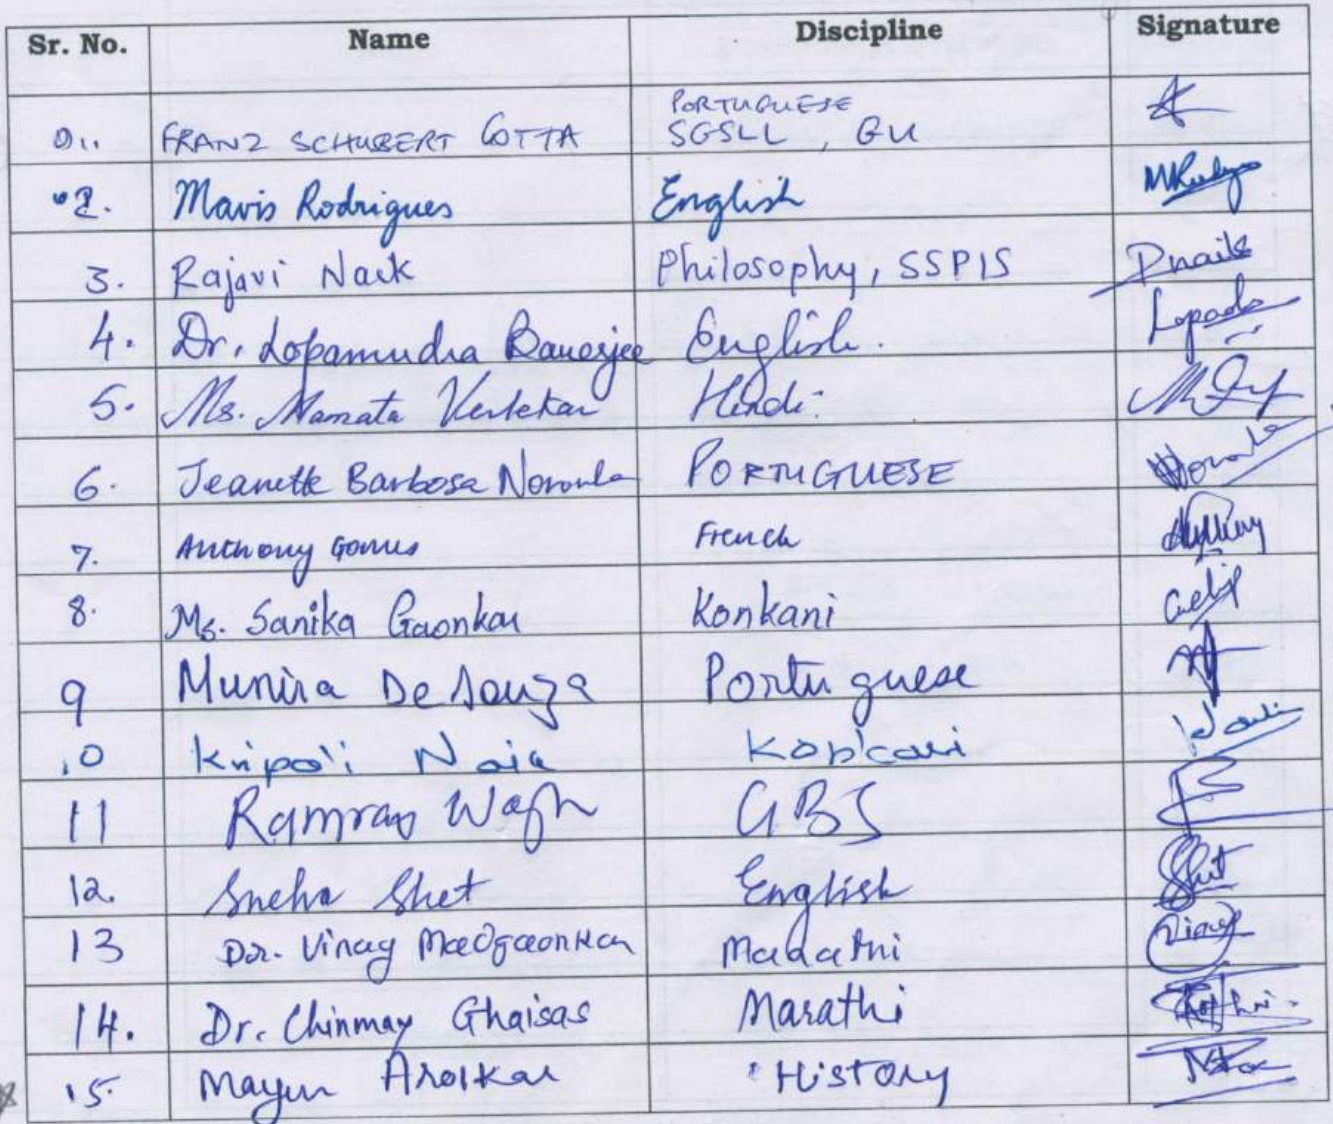 Sr. No. Name Discipline Signature
PORTUGUESE
01. FRANZ SCHUBERT COTTA SGSLL, GU
02. Mavis Rodrigues English
3. Rajavi Naik Philosophy, SSPIS Pnaik
4. Dr. Lopamudra Banerjee English.
5. Ms. Mamata Verlekar Hindi.
6. Jeanette Barbosa Noronha PORTUGUESE Noronha
7. Anthony Gomes French
8. Ms. Sanika Gaonkar Konkani
9 Munira De Souza Portuguese
10 Naik Konkani
11 Ramrao Wagh GBS
12. Sneha Shet English Shet
13 Dr. Vinay Madgaonkar Marathi
14. Dr. Chinmay Ghaisas Marathi
15. Mayur Arolkar History